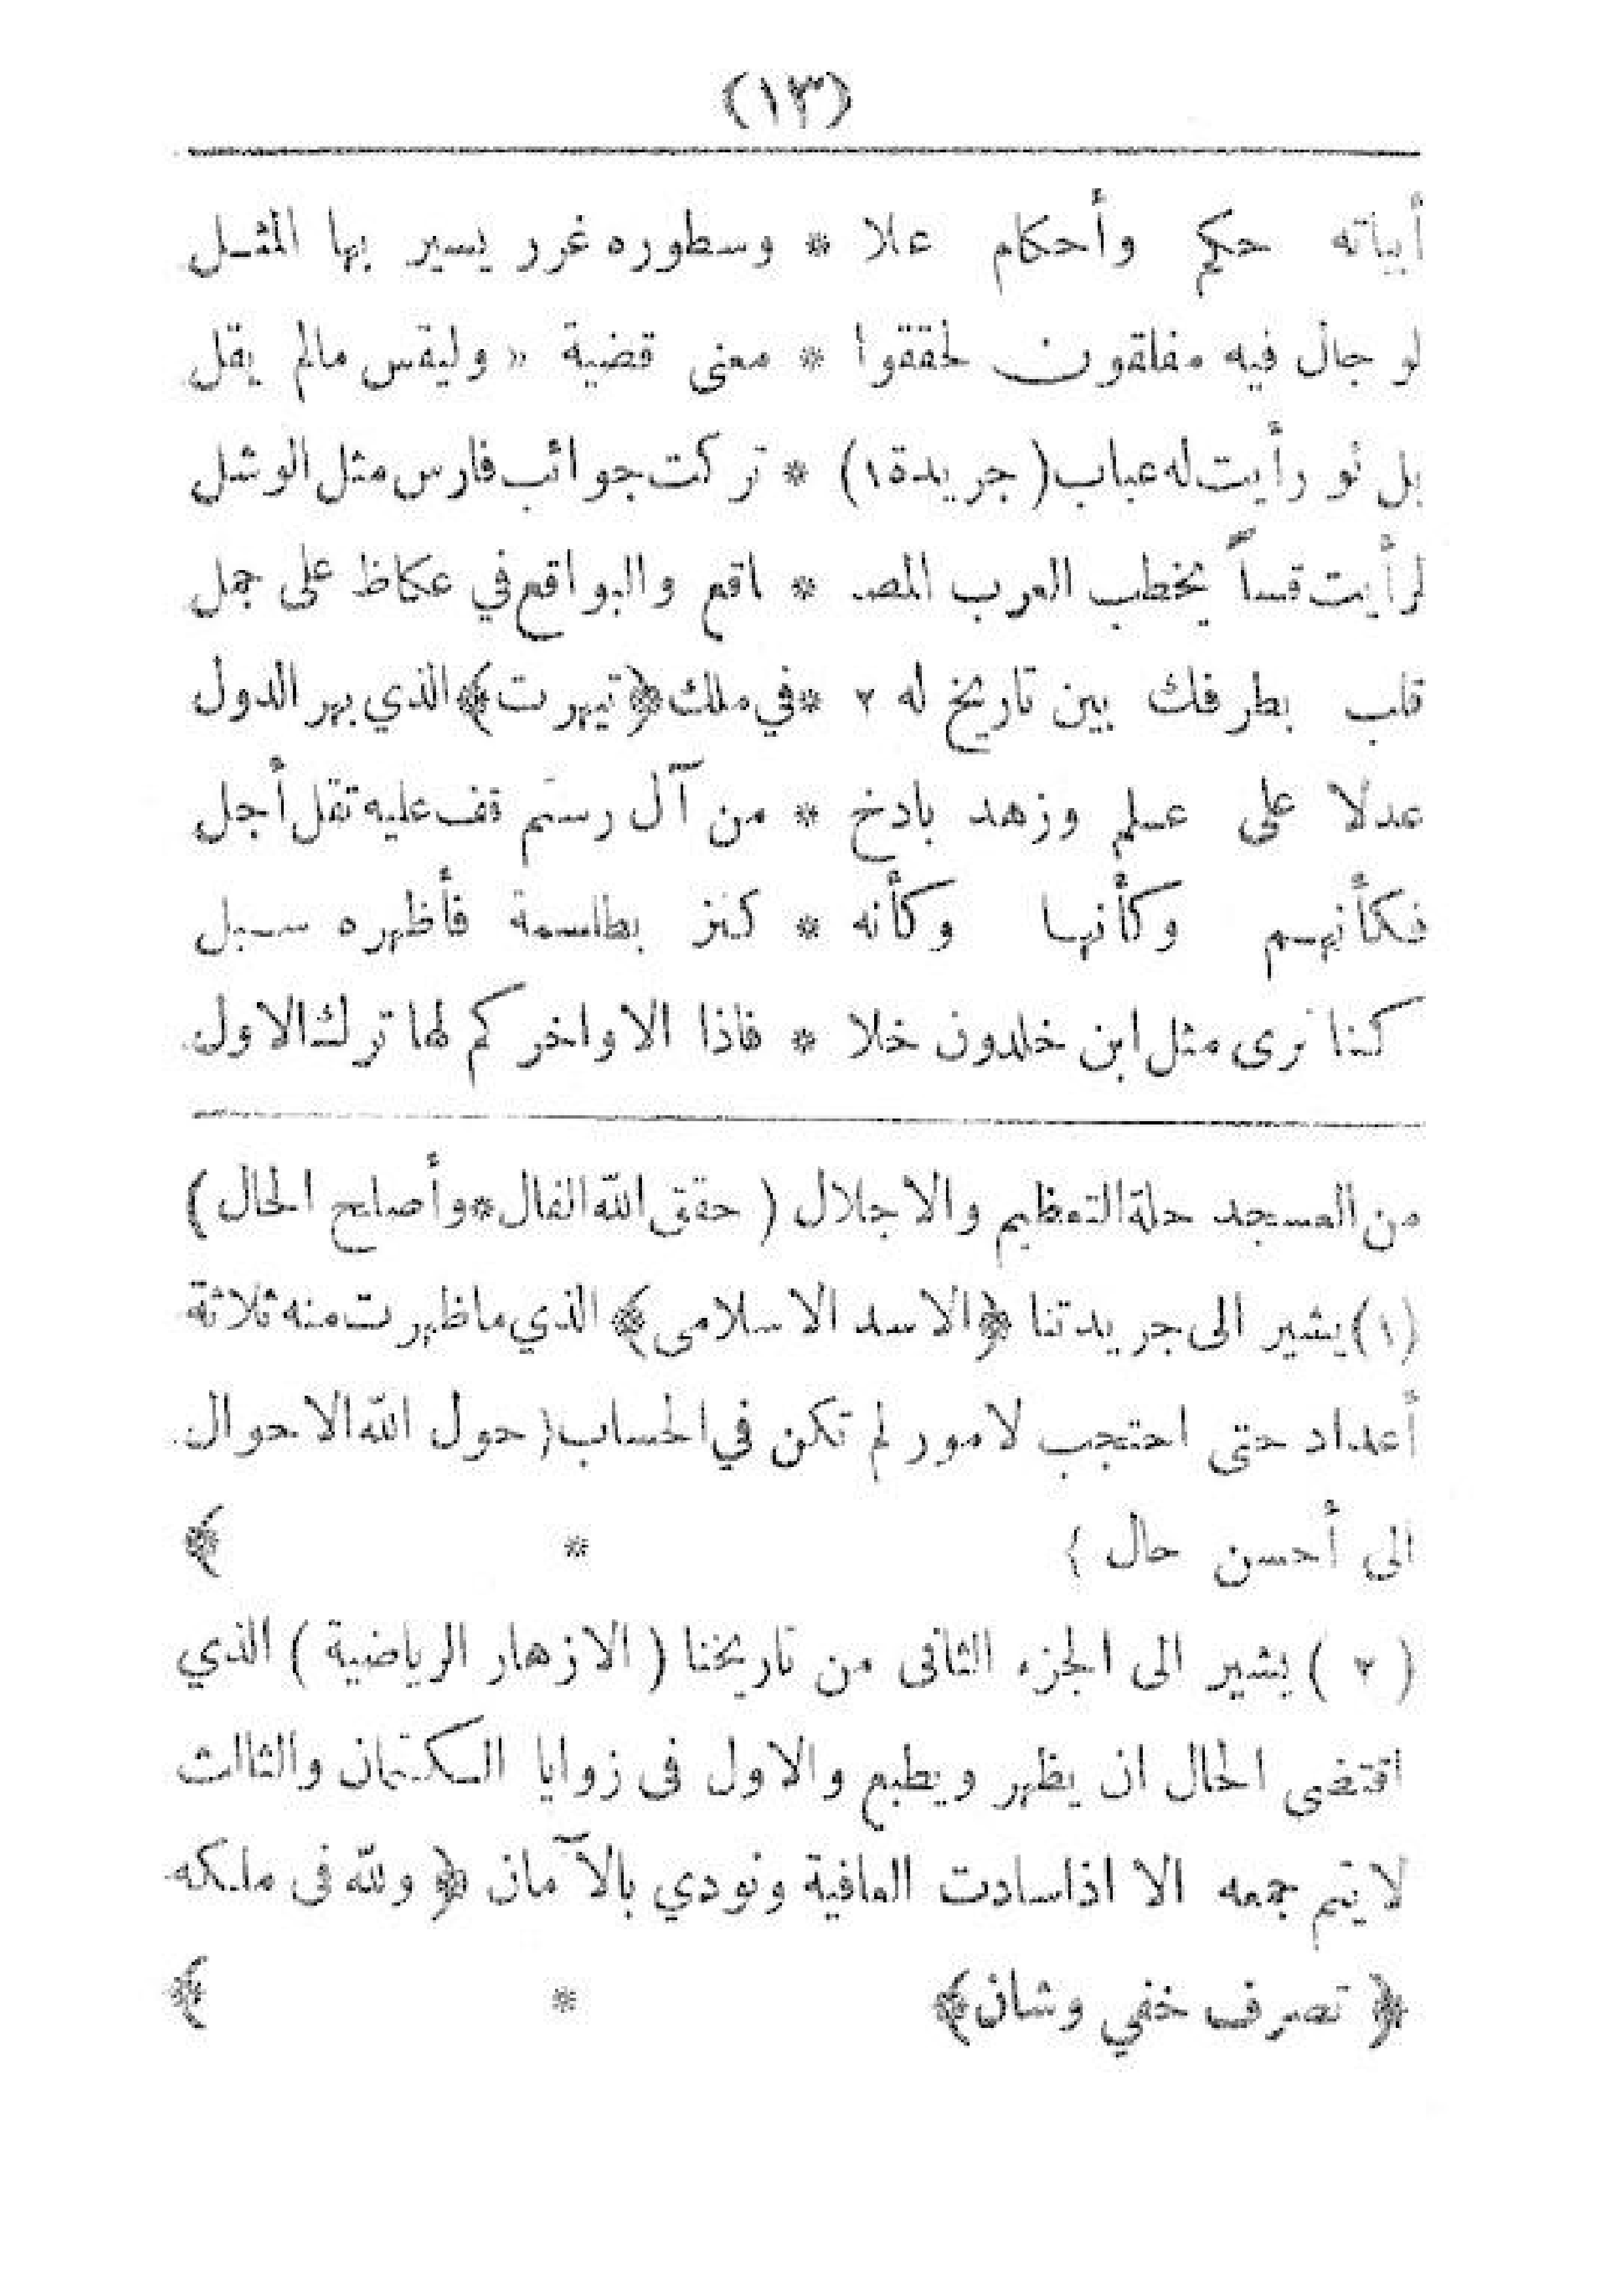 (١٣)
أبياته حكم وأحكام علا * وسطوره غرر يسير بها المثل
لو جال فيه مفلقون لحققوا * معنى قضية « وليقس مالم يقل
بل لو رأيت له عباب (جريدة ١) * تركت جوائب فارس مثل الوشل
لرأيت قساً يخطب العرب المصـ * ـاقع والبواقع في عكاظ على جمل
قلب بطرفك بين تاريخ له ٢ * في ملك ﴿تيهرت﴾ الذي بهر الدول
عدلا على علم وزهد باذخ * من آل رستم قف عليه تقل أجل
فكأنهم وكأنها وكأنه * كنز بطلسمة فأظهره سبل
كنا نرى مثل ابن خلدون خلا * فاذا الاواخر كم لها ترك الاول
من العسجد حلة التعظيم والاجلال ( حقق الله الفال * وأصلح الحال )
(١) يشير الى جريدتنا ﴿الاسد الاسلامى﴾ الذي ما ظهرت منه ثلاثة
أعداد حتى احتجب لامور لم تكن في الحساب (حول الله الاحوال
الى أحسن حال ) * ﴾
( ٢ ) يشير الى الجزء الثانى من تاريخنا ( الازهار الرياضية ) الذي
اقتضى الحال ان يظهر ويطبع والاول فى زوايا الكتمان والثالث
لا يتم جمعه الا اذا سادت العافية ونودي بالآمان ﴿ ولله فى ملكه
﴿ تصرف خفي وشان﴾ * ﴾